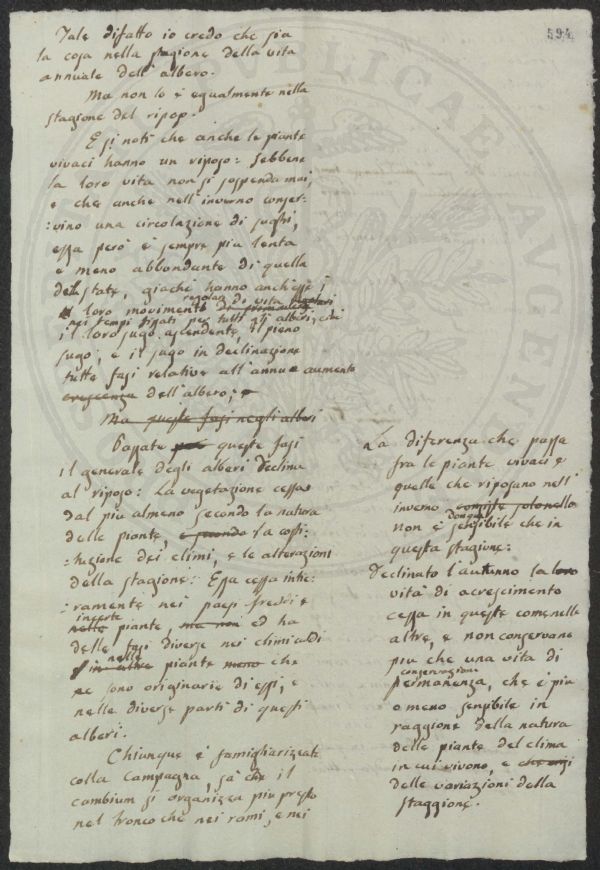 594.
Tale difatto io credo che sia
la cosa nella stagione della vita
annuale dell'albero.
Ma non lo è egualmente nella
stagione del riposo.
E si noti che anche le piante
vivaci hanno un riposo: sebbene
la loro vita non si sospenda mai,
e che anche nell'inverno conser-
:vino una circolazione di sughi,
essa però è sempre più lenta
e meno abbondante di quella
d'estate, giacché hanno anch'esse
il loro movimento regolare di vita
nei tempi fissati per tutti gli alberi, cioè
il loro sugo ascendente, il pieno
sugo, e il sugo in declinazione
tutte fasi relative all'annuo aumento
crescenza dell'albero; e
Ma queste fasi negli alberi
Passate queste fasi
il generale degli alberi declina
al riposo: La vegetazione cessa
dal più almeno secondo la natura
delle piante, e secondo la costi-
:tuzione dei climi, e le alterazioni
della stagione: Essa cessa intie:
:ramente nei paesi freddi e
incerte
nelle piante, ma non ed ha
delle fasi diverse nei climi caldi
nelle
in altre piante meno che
ne sono originarie di essi, e
nelle diverse parti di questi
alberi:
Chiunque è famigliarizzato
colla Campagna, sa che il
cambium si organizza più presto
nel tronco che nei rami, e nei
La diferenza che passa
fra le piante vivaci e
quelle che riposano nell'
inverno consiste solo nello
dunque
non è sensibile che in
questa stagione:
Declinato l'autunno la loro
vita di acrescimento
cessa in queste come nelle
altre, e non conservano
più che una vita di
conservazione
permanenza, che è più
o meno sensibile in
raggione della natura
delle piante del clima
in cui vivono, e che anzi
delle variazioni della
staggione.
PVBLICAE
AVGENTO